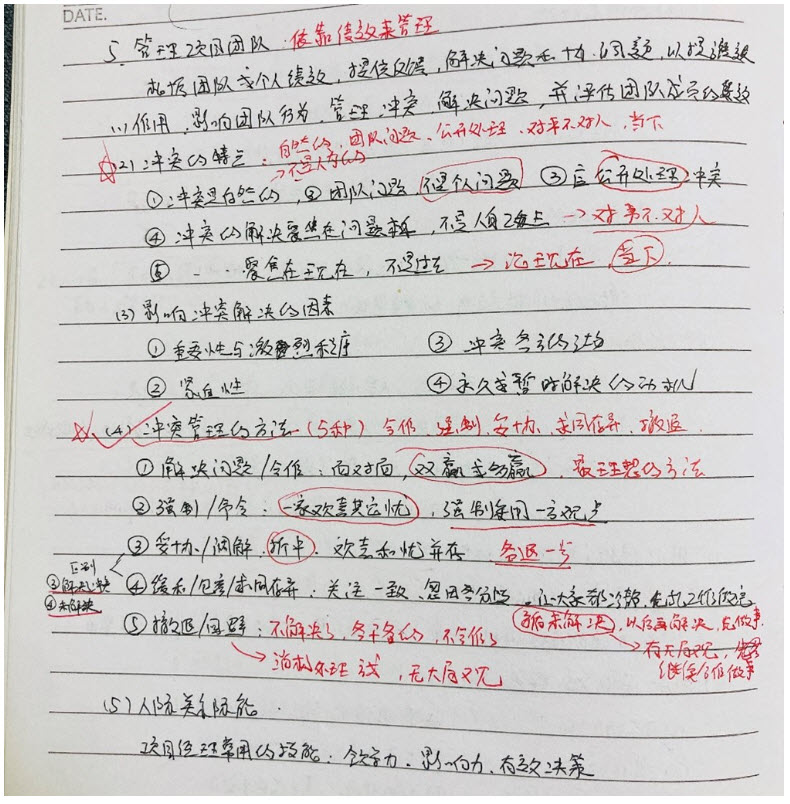 DATE.
5. 管理项目团队 依靠绩效来管理
根据团队或个人绩效，提供反馈，解决问题和协调问题，以提高绩效
(1) 作用，影响团队行为，管理冲突，解决问题，并评估团队成员的绩效
☆(2) 冲突的特点：自然的、团队问题、公开处理、对事不对人、当下
→不是人为的
①冲突是自然的，②团队问题，不是个人问题 ③应公开处理冲突
④ 冲突的解决聚焦在问题，不是人身攻击 → 对事不对人
⑤ 聚焦在现在，不是过去 → 现在 当下.
(3) 影响冲突解决的因素
① 重要性与激烈程度 ③ 冲突各方的
② 紧迫性 ④ 永久或暂时解决的动机
☆(4) 冲突管理的方法 (5种) 合作、强制、妥协、求同存异、撤退
① 解决问题/合作：面对面，双赢或多赢，最理想的方法
② 强制/命令：一家欢喜其它忧，强制采用一方观点
③ 妥协/调解：折中. 欢喜和忧并存 各退一步
区别
③解决
④未解决
④ 缓和/包容/求同存异：关注一致、忽略分歧，让大家都冷静，先把工作做完
暂未解决，以后再解决，先做事
→ 有大局观，继续合作做事
⑤ 撤退/回避：不解决了，各干各的，不合作了
→ 消极处理，无大局观
(5) 人际关系技能.
项目经理常用的技能：领导力、影响力、有效决策